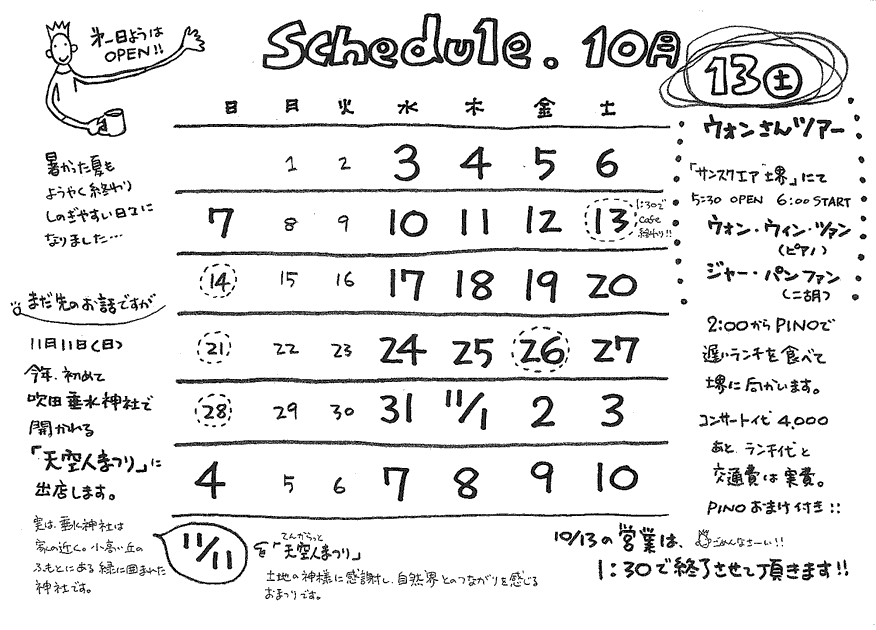 第一日ようは
OPEN!!
Schedule. 10月
日 月 火 水 木 金 土
1 2 3 4 5 6
7 8 9 10 11 12 13
1:30で
cafe
終わり!!
14 15 16 17 18 19 20
21 22 23 24 25 26 27
28 29 30 31 11/1 2 3
4 5 6 7 8 9 10
暑かった夏も
ようやく終わり
しのぎやすい日々に
なりました…
まだ先のお話ですが
11月11日(日)
今年、初めて
吹田垂水神社で
開かれる
「天空人まつり」に
出店します。
実は、垂水神社は
家の近く。小高い丘の
ふもとにある緑に囲まれた
神社です。
13土
ウォンさんツアー
「サンスクエア堺」にて
5:30 OPEN 6:00 START
ウォン・ウィン・ツァン
(ピアノ)
ジャー・パンファン
(二胡)
2:00からPINOで
遅いランチを食べて
堺に向かいます。
コンサート代 4,000
あと、ランチ代と
交通費は実費。
PINOおまけ付き!!
11/11
てんからっと
「天空人まつり」
土地の神様に感謝し、自然界とのつながりを感じる
おまつりです。
10/13の営業は、
ごめんなさーい!!
1:30で終了させて頂きます!!